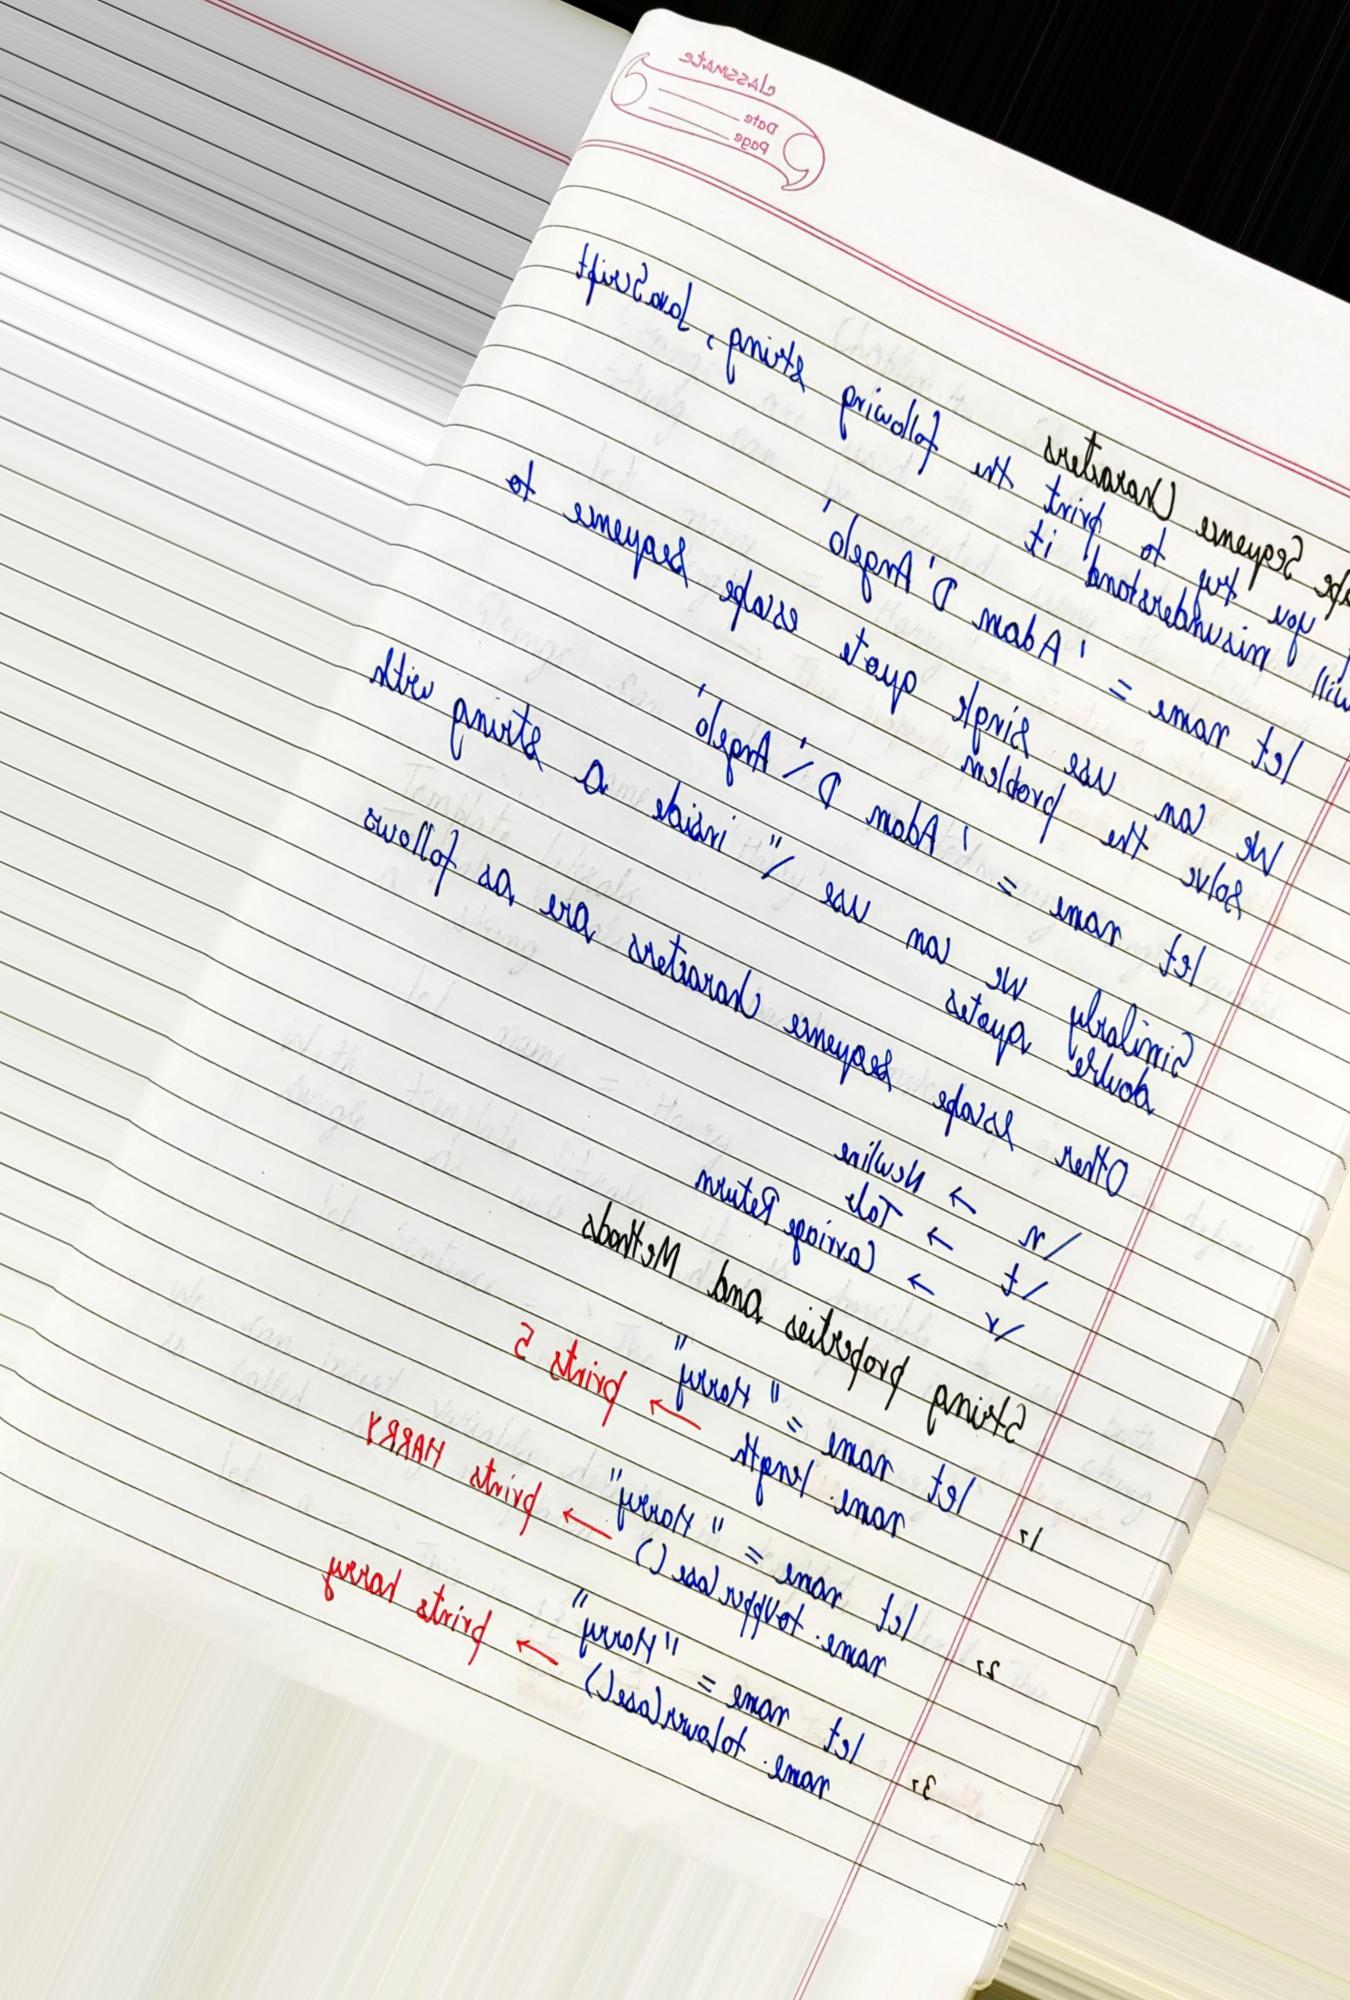 classmate
Date
Page
Sequence Characters
you try to print the following string, JavaScript
will misunderstand it
let name = 'Adam D'Angelo'
We can use single quote escape sequence to
solve the problem
let name = 'Adam D\'Angelo'
Similarly we can use \" inside a string with
double quotes
Other escape sequence characters are as follows
\n → Newline
\t → Tab
\r → Carriage Return
String properties and Methods
1, let name = "Harry"
name.length → prints 5
2, let name = "Harry"
name.toUpperCase() → prints HARRY
3, let name = "Harry"
name.toLowerCase() → prints harry